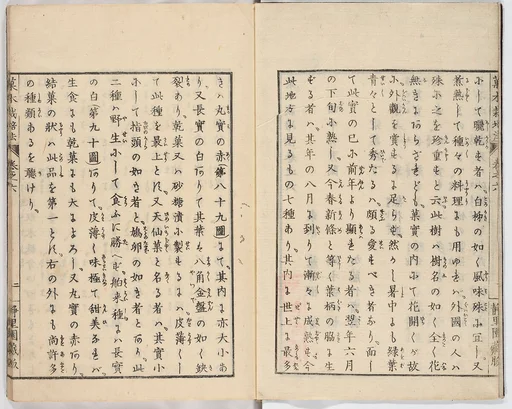 にして臘乾せる者ハ白柿の如く風味殊に宜し又
煮熟して種々の料理にも用ゆれバ外國の人ハ
殊に之を珍重せと云此樹ハ樹名の如く全く花
無きにあらざれども菓實の内にて花開くが故
に外觀を賞するに足らず然れ𪜈暑中にも緑葉
青々として秀たるハ頗る愛すべき者なり而し
て此實の已に前年より顕たる者ハ翌年六月
の下旬に熟し又今春新條と等く葉柄の脇に生
ずる者ハ其年の八月に到りて漸々に成熟せり今
此地方に見るもの七種あり其内に世上に最多
きハ丸實の赤第八十九圖にて其内に亦大小あ
り又長實の白ありて其葉も八角金盤の如く鋏
裂あり乾菓又ハ砂糖漬に製するにハ皮薄くし
て此種を最上とす又天仙菓と名る者ハ其實小
にして指頭の如き者と鳩卵の如き者とあり此
二種ハ野生にして食ふに勝へず舶来種にハ長實
の白第九十圖ありて皮薄く味極て甜美なれバ
生食にも乾菓にも大によろし又丸實の赤ありて
結菓の狀ハ此品を第一とす右の外にも尚許多
の種類あるを聴けり
菓木栽培法 卷之六 二 静里園蔵版